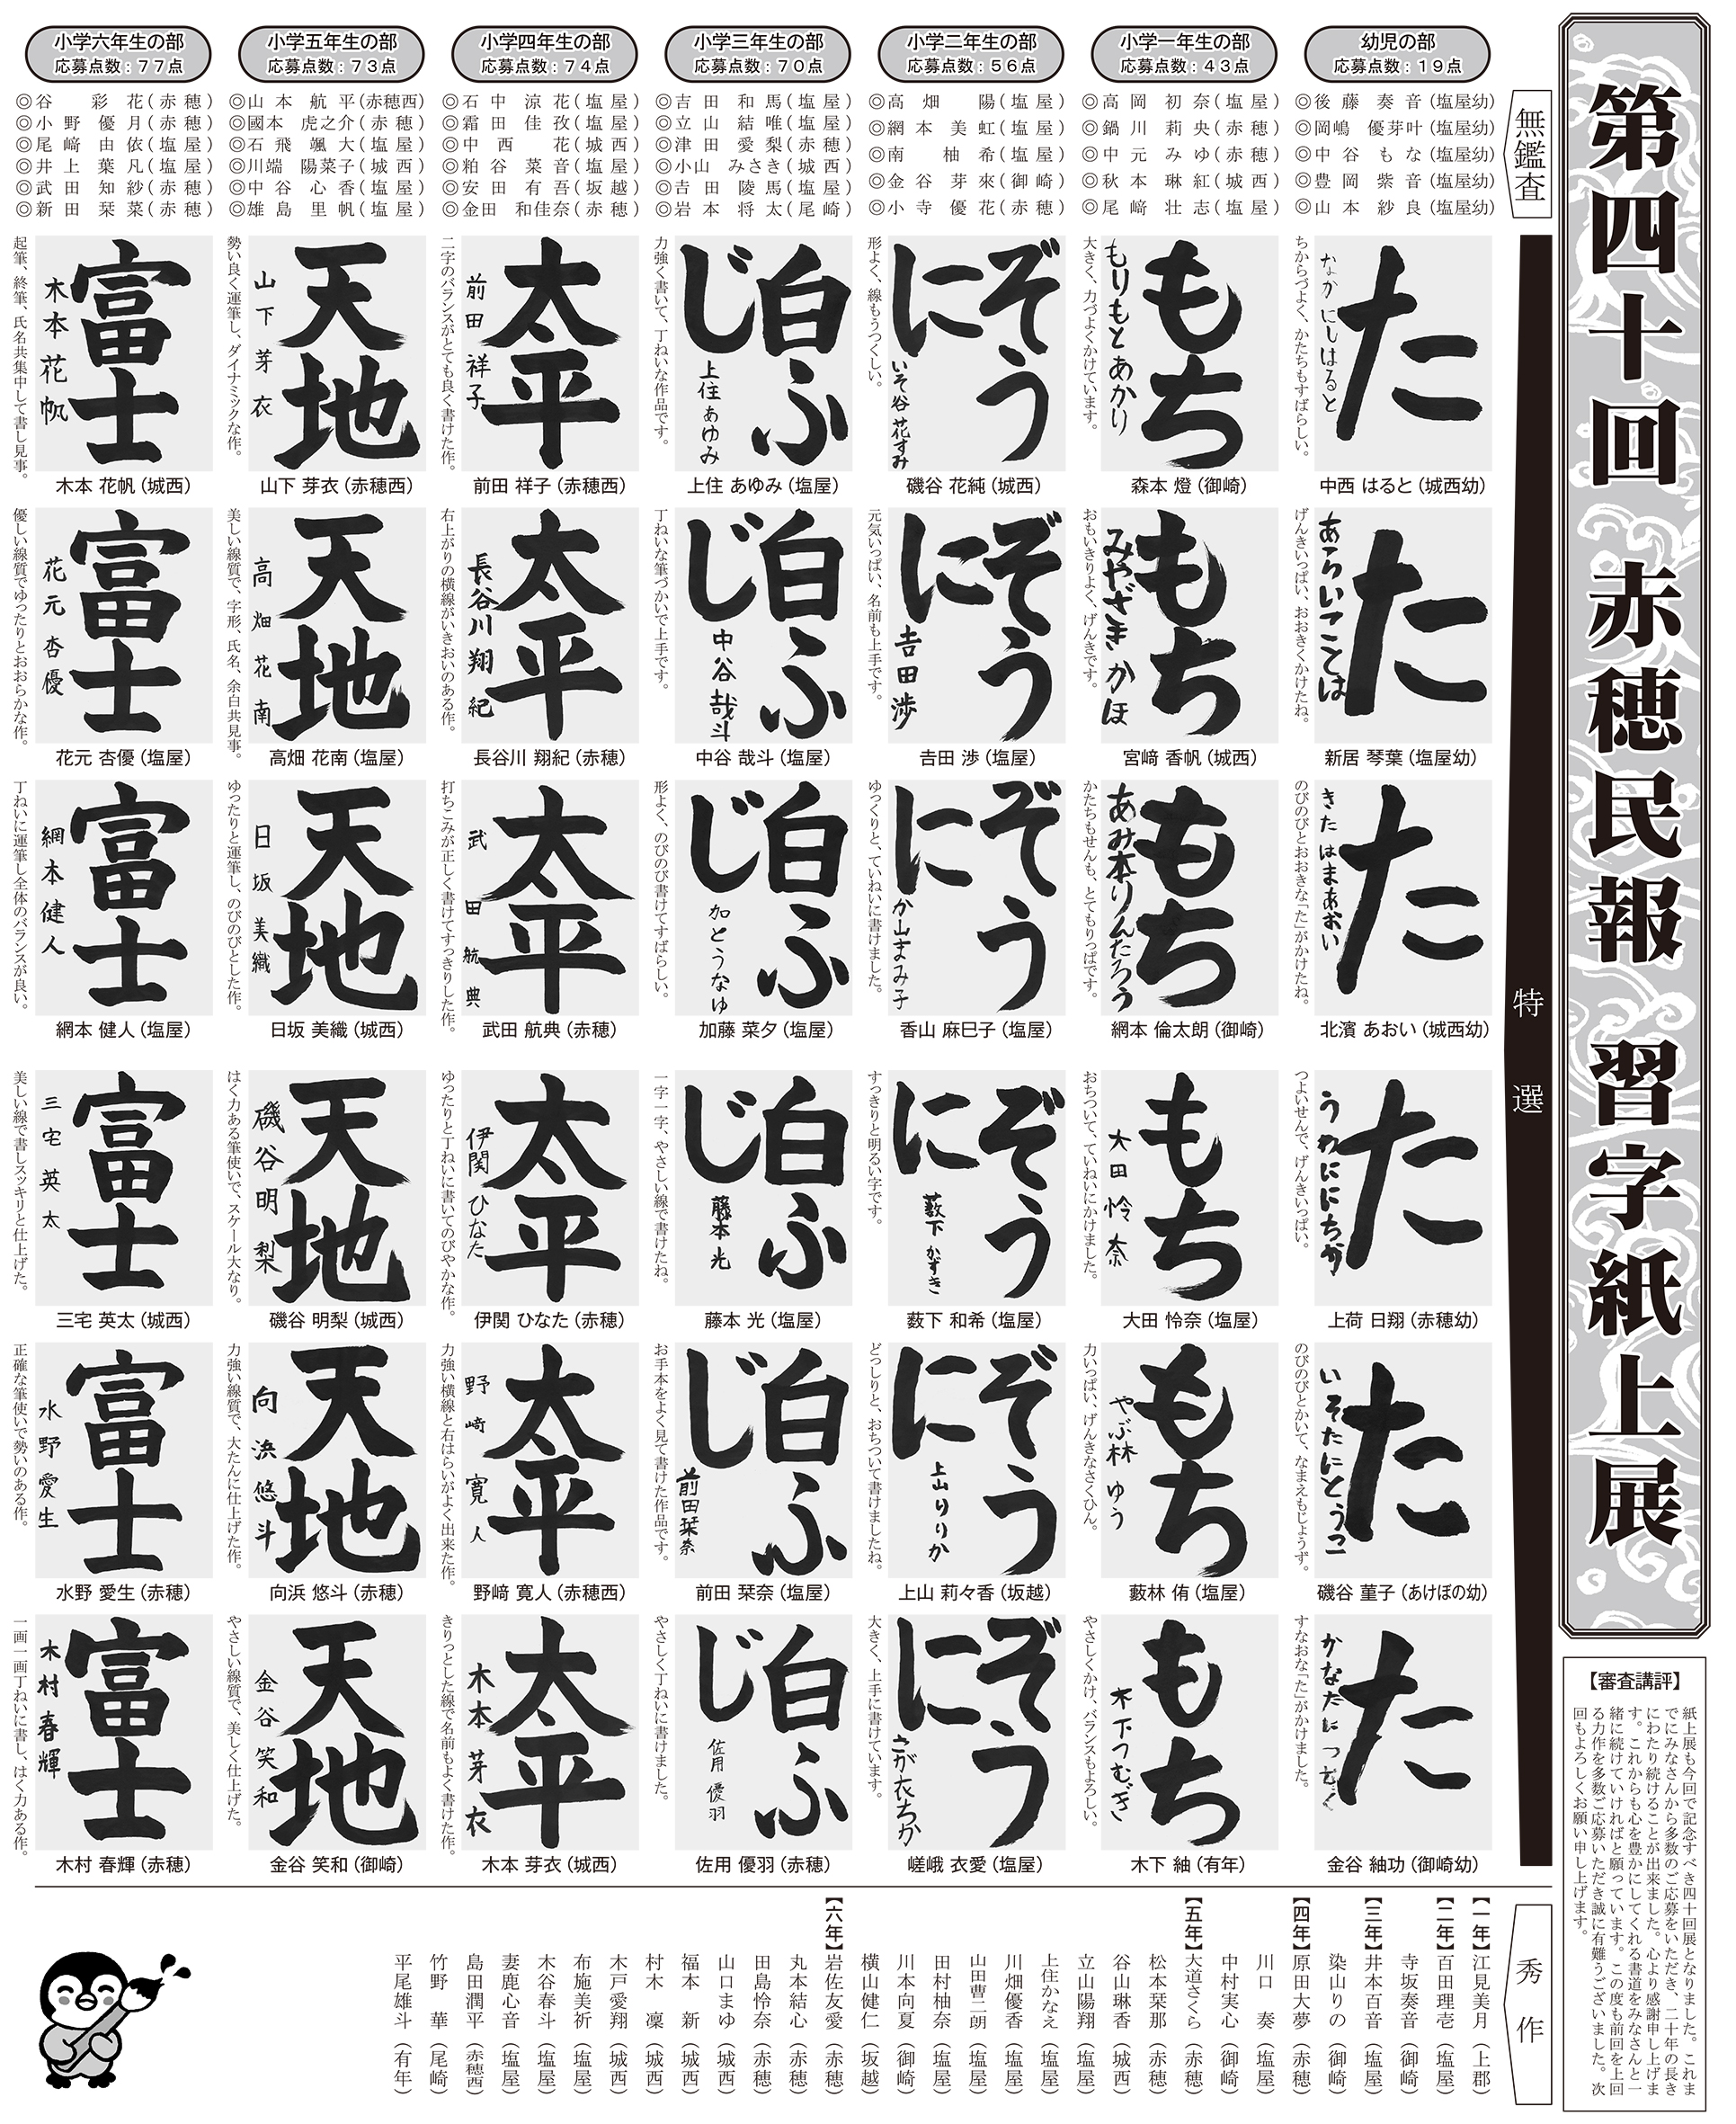 第四十回 赤穂民報 習字紙上展
無鑑査
幼児の部
応募点数：１９点
◎後藤奏音(塩屋幼)
◎岡嶋優芽叶(塩屋幼)
◎中谷もな(塩屋幼)
◎豊岡紫音(塩屋幼)
◎山本紗良(塩屋幼)
小学一年生の部
応募点数：４３点
◎高岡初奈(塩屋)
◎鍋川莉央(赤穂)
◎中元みゆ(赤穂)
◎秋本琳紅(城西)
◎尾﨑壮志(塩屋)
小学二年生の部
応募点数：５６点
◎高畑陽(塩屋)
◎網本美虹(塩屋)
◎南柚希(塩屋)
◎金谷芽來(御崎)
◎小寺優花(赤穂)
小学三年生の部
応募点数：７０点
◎吉田和馬(塩屋)
◎立山結唯(塩屋)
◎津田愛梨(赤穂)
◎小山みさき(城西)
◎吉田陵馬(塩屋)
◎岩本将太(尾崎)
小学四年生の部
応募点数：７４点
◎石中涼花(塩屋)
◎霜田佳孜(塩屋)
◎中西花(城西)
◎粕谷菜音(塩屋)
◎安田有吾(坂越)
◎金田和佳奈(赤穂)
小学五年生の部
応募点数：７３点
◎山本航平(赤穂西)
◎國本虎之介(赤穂)
◎石飛颯大(塩屋)
◎川端陽菜子(城西)
◎中谷心香(塩屋)
◎雄島里帆(塩屋)
小学六年生の部
応募点数：７７点
◎谷彩花(赤穂)
◎小野優月(赤穂)
◎尾﨑由依(塩屋)
◎井上葉凡(塩屋)
◎武田知紗(赤穂)
◎新田栞菜(赤穂)
特選
た
なかにしはると
ちからづよく、かたちもすばらしい。
中西 はると（城西幼）
もち
もりもとあかり
大きく、力づよくかけています。
森本 燈（御崎）
ぞうに
いそ谷花すみ
形よく、線もうつくしい。
磯谷 花純（城西）
白ふじ
上住あゆみ
力強く書いて、丁ねいな作品です。
上住 あゆみ（塩屋）
太平
前田祥子
二字のバランスがとても良く書けた作。
前田 祥子（赤穂西）
天地
山下芽衣
勢い良く運筆し、ダイナミックな作。
山下 芽衣（赤穂西）
富士
木本花帆
起筆、終筆、氏名共集中して書し見事。
木本 花帆（城西）
た
あらいことは
げんきいっぱい、おおきくかけたね。
新居 琴葉（塩屋幼）
もち
みやざきかほ
おもいきりよく、げんきです。
宮﨑 香帆（城西）
ぞうに
吉田渉
元気いっぱい、名前も上手です。
吉田 渉（塩屋）
白ふじ
中谷哉斗
丁ねいな筆づかいで上手です。
中谷 哉斗（塩屋）
太平
長谷川翔紀
右上がりの横線がいきおいのある作。
長谷川 翔紀（赤穂）
天地
高畑花南
美しい線質で、字形、氏名、余白共見事。
高畑 花南（塩屋）
富士
花元杏優
優しい線質でゆったりとおおらかな作。
花元 杏優（塩屋）
た
きたはまあおい
のびのびとおおきな「た」がかけたね。
北濱 あおい（城西幼）
もち
あみ本りんたろう
かたちもせんも、とてもりっぱです。
網本 倫太朗（御崎）
ぞうに
か山まみ子
ゆっくりと、ていねいに書けました。
香山 麻巳子（塩屋）
白ふじ
加とうなゆ
形よく、のびのび書けてすばらしい。
加藤 菜夕（塩屋）
太平
武田航典
打ちこみが正しく書けてすっきりした作。
武田 航典（赤穂）
天地
日坂美織
ゆったりと運筆し、のびのびとした作。
日坂 美織（城西）
富士
網本健人
丁ねいに運筆し全体のバランスが良い。
網本 健人（塩屋）
た
うわににちか
つよいせんで、げんきいっぱい。
上荷 日翔（赤穂幼）
もち
大田怜奈
おちついて、ていねいにかけました。
大田 怜奈（塩屋）
ぞうに
薮下かずき
すっきりと明るい字です。
薮下 和希（塩屋）
白ふじ
藤本光
一字一字、やさしい線で書けたね。
藤本 光（塩屋）
太平
伊関ひなた
ゆったりと丁ねいに書いてのびやかな作。
伊関 ひなた（赤穂）
天地
磯谷明梨
はく力ある筆使いで、スケール大なり。
磯谷 明梨（城西）
富士
三宅英太
美しい線で書しスッキリと仕上げた。
三宅 英太（城西）
た
いそたにとうこ
のびのびとかいて、なまえもじょうず。
磯谷 菫子（あけぼの幼）
もち
やぶ林ゆう
力いっぱい、げんきなさくひん。
藪林 侑（塩屋）
ぞうに
上山りりか
どっしりと、おちついて書けましたね。
上山 莉々香（坂越）
白ふじ
前田栞奈
お手本をよく見て書けた作品です。
前田 栞奈（塩屋）
太平
野崎寛人
力強い横線と右はらいがよく出来た作。
野﨑 寛人（赤穂西）
天地
向浜悠斗
力強い線質で、大たんに仕上げた作。
向浜 悠斗（赤穂）
富士
水野愛生
正確な筆使いで勢いのある作。
水野 愛生（赤穂）
た
かなたにつむく
すなおな「た」がかけました。
金谷 紬功（御崎幼）
もち
木下つむぎ
やさしくかけ、バランスもよろしい。
木下 紬（有年）
ぞうに
さが衣ちか
大きく、上手に書けています。
嵯峨 衣愛（塩屋）
白ふじ
佐用優羽
やさしく丁ねいに書けました。
佐用 優羽（赤穂）
太平
木本芽衣
きりっとした線で名前もよく書けた作。
木本 芽衣（城西）
天地
金谷笑和
やさしい線質で、美しく仕上げた。
金谷 笑和（御崎）
富士
木村春輝
一画一画丁ねいに書し、はく力ある作。
木村 春輝（赤穂）
【審査講評】
紙上展も今回で記念すべき四十回展となりました。これま
でにみなさんから多数のご応募をいただき、二十年の長き
にわたり続けることが出来ました。心より感謝申し上げま
す。これからも心を豊かにしてくれる書道をみなさんと一
緒に続けていければと願っています。この度も前回を上回
る力作を多数ご応募いただき誠に有難うございました。次
回もよろしくお願い申し上げます。
秀作
【一年】江見美月（上郡）
【二年】百田理壱（塩屋）
寺坂奏音（御崎）
【三年】井本百音（塩屋）
染山りの（御崎）
【四年】原田大夢（赤穂）
川口奏（塩屋）
中村実心（御崎）
【五年】大道さくら（赤穂）
松本栞那（赤穂）
谷山琳香（城西）
立山陽翔（塩屋）
上住かなえ（塩屋）
川畑優香（塩屋）
山田曹二朗（塩屋）
田村柚奈（塩屋）
川本向夏（御崎）
横山健仁（坂越）
【六年】岩佐友愛（赤穂）
丸本結心（赤穂）
田島怜奈（赤穂）
山口まゆ（城西）
福本新（城西）
村木凜（城西）
木戸愛翔（城西）
布施美祈（塩屋）
木谷春斗（塩屋）
妻鹿心音（塩屋）
島田潤平（赤穂西）
竹野華（尾崎）
平尾雄斗（有年）